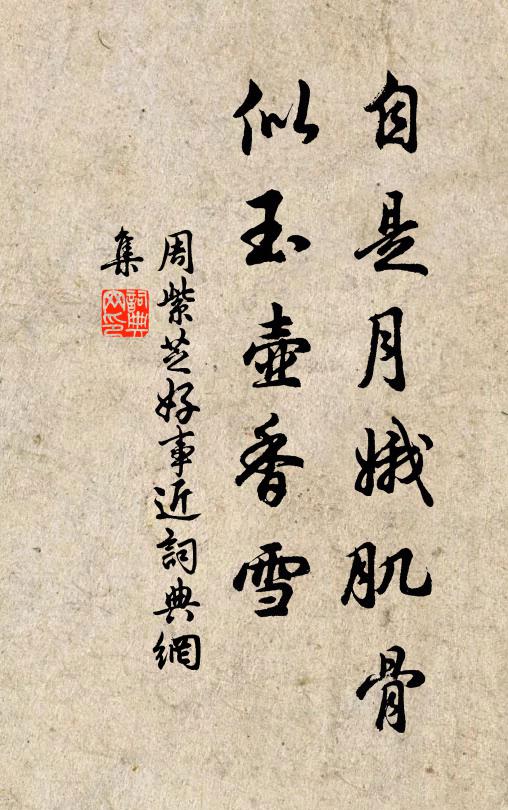 自是月娥肌骨
似玉壺香雪
周紫芝好事近詞典網
集
詞典網印